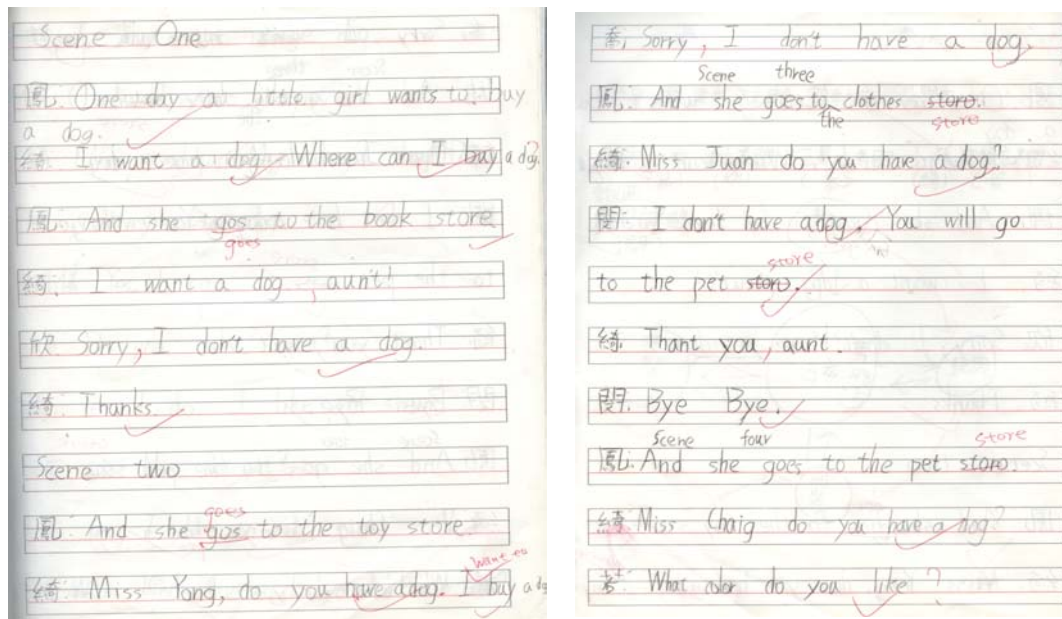 Scene One
鳳: One day a little girl wants to buy
a dog.
綺: I want a dog. Where can I buy a dog?
鳳: And she gos to the book store
goes
綺: I want a dog, aun't!
欣: Sorry, I don't have a dog.
綺: Thanks.
Scene two
goes
鳳: And she gos to the toy store.
want to
綺: Miss Yong, do you have adog. I buy a dog
喬: Sorry, I don't have a dog.
Scene three
鳳: And she goes to clothes storo.
the store
綺: Miss Juan do you have a dog?
閔: I don't have adog. You will go
store
to the pet storo.
綺: Thant you, aunt.
閔: Bye Bye.
Scene four store
鳳: And she goes to the pet storo.
綺: Miss Chaig do you have a dog?
What color do you like?